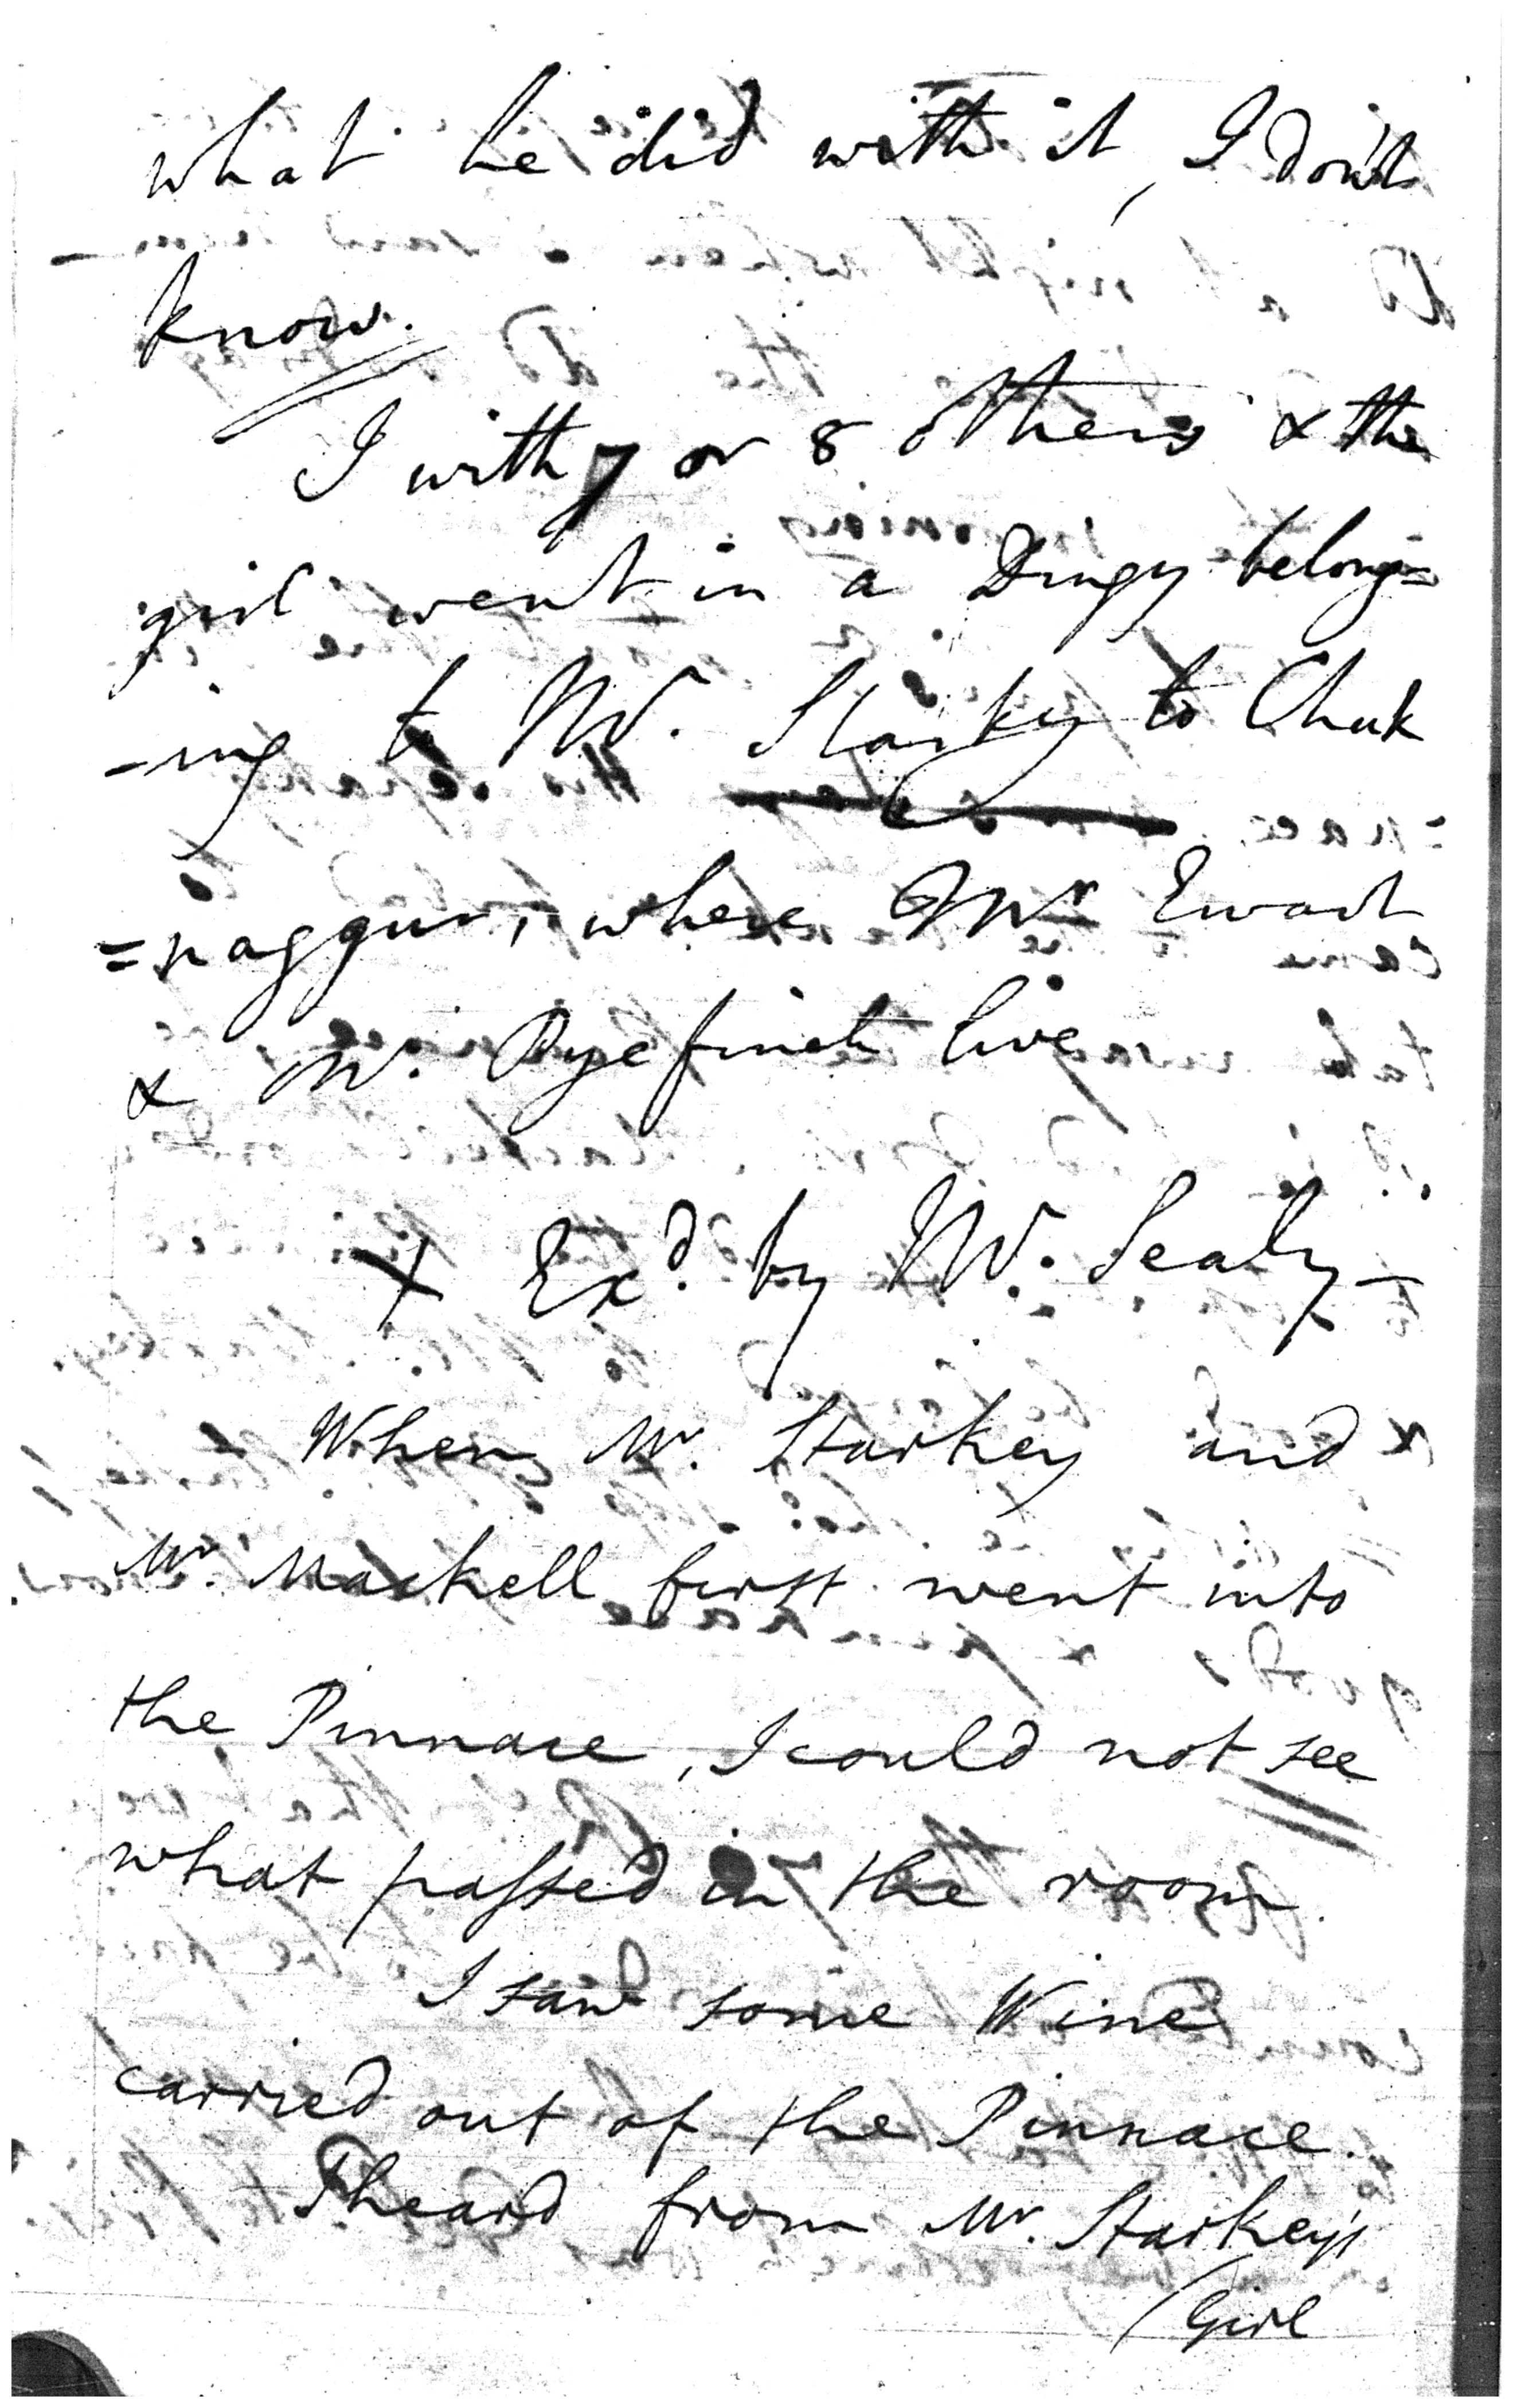 what he did with it, I don't
know.
I with 7 or 8 others & the
girl went in a Dingy belong=
-ing to Mr. Starkey to Chuk
=naggur, where Mr Ewart
& Mr. Pyefinch live
X Exd. by Mr. Sealy -
When Mr. Starkey and
Mr. Mackell first went into
the Pinnace, I could not see
what passed in the room.
I saw some Wine
carried out of the Pinnace.
I heard from Mr. Starkey's
/Girl